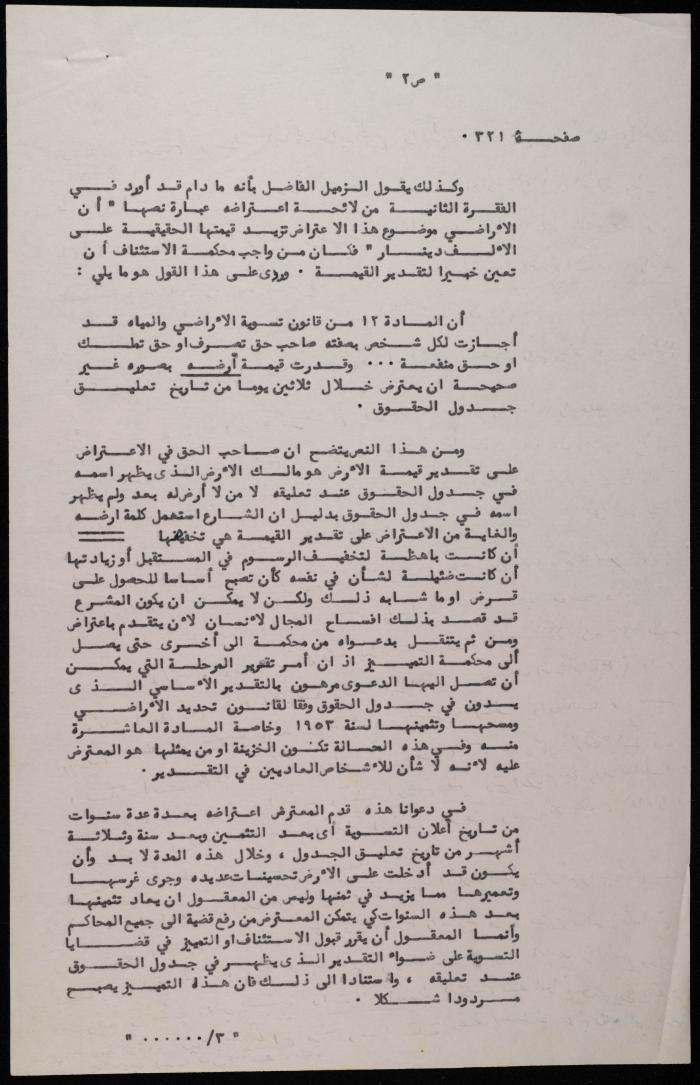 " ص٢ "
صفحـــة ٣٢١ ٠
وكذلك يقول الزميل الفاضل بأنه ما دام قد أورد فـــي
الفقرة الثانيـــة من لائحـة اعـتراضه عبارة نصهـا " أ ن
الاراضي موضوع هذا الاعتراض تزيـد قيمتها الحقيقيـة علـى
الالــف دينــار " فكـان مـن واجب محكمـة الاستئناف أ ن
تعين خبيرا لتقدير القيمـــة ٠ وردى علـى هذا القول هو ما يلي :
أن المــادة ١٢ مـن قانون تسوية الاراضي والمياه قــد
أجـازت لكل شخـص بصفته صاحب حق تصرف او حق تملـك
او حــق منفعــة ٠٠٠ وقـدرت قيمـة أرضــه بصوره غــير
صحيحـة ان يعترض خـلال ثلاثين يومـا من تاريخ تعليـــق
جـــدول الحقــوق ٠
ومـن هـذا النص يتضح ان صـاحب الحق في الاعـتراض
على تقـدير قيمـة الارض هو مالـك الارض الذى يظهر اسمـه
فـي جـدول الحقـوق عنـد تعليقه لا من لا أرض له بعد ولم يظهر
اسمه فـي جـدول الحقوق بدليـل ان الشـارع استعمل كلمة ارضـه
والغاية من الاعتراض على تقدير القيمـة هي تخفيضها
أن كانـت باهظـة لتخفيـف الرسوم في المستقبل أو زيادتها
أن كانت ضئيلـة لشأن في نفسه كأن تصبح أسـاسا للحصول علـى
قـرض او ما شـابه ذلـك ولكـن لا يمكـن ان يكون المشرع
قد قصـد بذلـك افسـاح المجال لانسـان لان يتقـدم باعتراض
ومـن ثم يتنقـل بدعـواه من محكمـة الى أخـرى حتى يصـل
ألى محكمة التميـيز اذ ان أمـر تقرير المرحلـة التي يمكـن
أن تصـل اليهـا الدعـوى مرهـون بالتقدير الاسـاسي الـــذ ى
يـدون في جـدول الحقوق وفقا لقانـون تحديد الاراضـــي
ومسحهـا وتثمينهـا لسنة ١٩٥٣ وخاصة المـادة العاشـــرة
منـه وفـي هذه الحـالة تكـون الخزينة او من يمثلهـا هو المعترض
عليه لانـه لا شأن للاشخـاص العاديـين في التقـــدير ٠
فـي دعوانا هذه قدم المعترض اعـتراضه بعـدة عدة سنـوات
من تـاريخ أعلان التسـوية أى بعـد التثمين وبعـد سنة وثـلاثـة
أشهـر من تاريخ تعليـق الجدول ، وخلال هذه المدة لا بـد وأن
يكـون قد أدخلت علـى الارض تحسينـات عديده وجرى غرسهــا
وتعميرهـا ممـا يزيـد في ثمنها وليس من المعقـول ان يعاد تثمينهـا
بعـد هـذه السنوات كي يتمكن المعـترض من رفع قضية الى جميع المحاكم
وأنمـا المعقـول أن يقرر قبول الاستئناف او التمييز في قضــايا
التسوية على ضـوء التقدير الذى يظهـر في جـدول الحقــوق
عنـد تعليقه ، واستنادا الى ذلـك فان هـذا التميـيز يصبـح
مــردودا شــكلا ٠
" ٣/٠٠٠٠٠٠ "